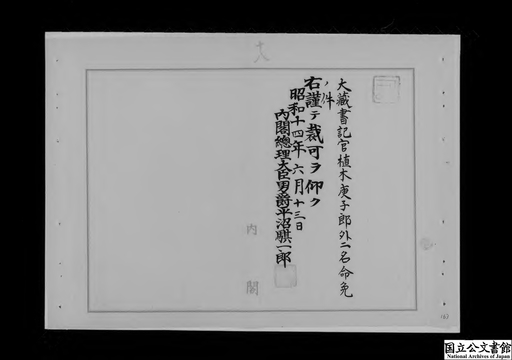 大藏書記官植木庚子郎外二名命免
ノ件
右謹テ裁可ヲ仰ク
昭和十四年六月十三日
內閣總理大臣男爵平沼騏一郎
內閣
国立公文書館
National Archives of Japan